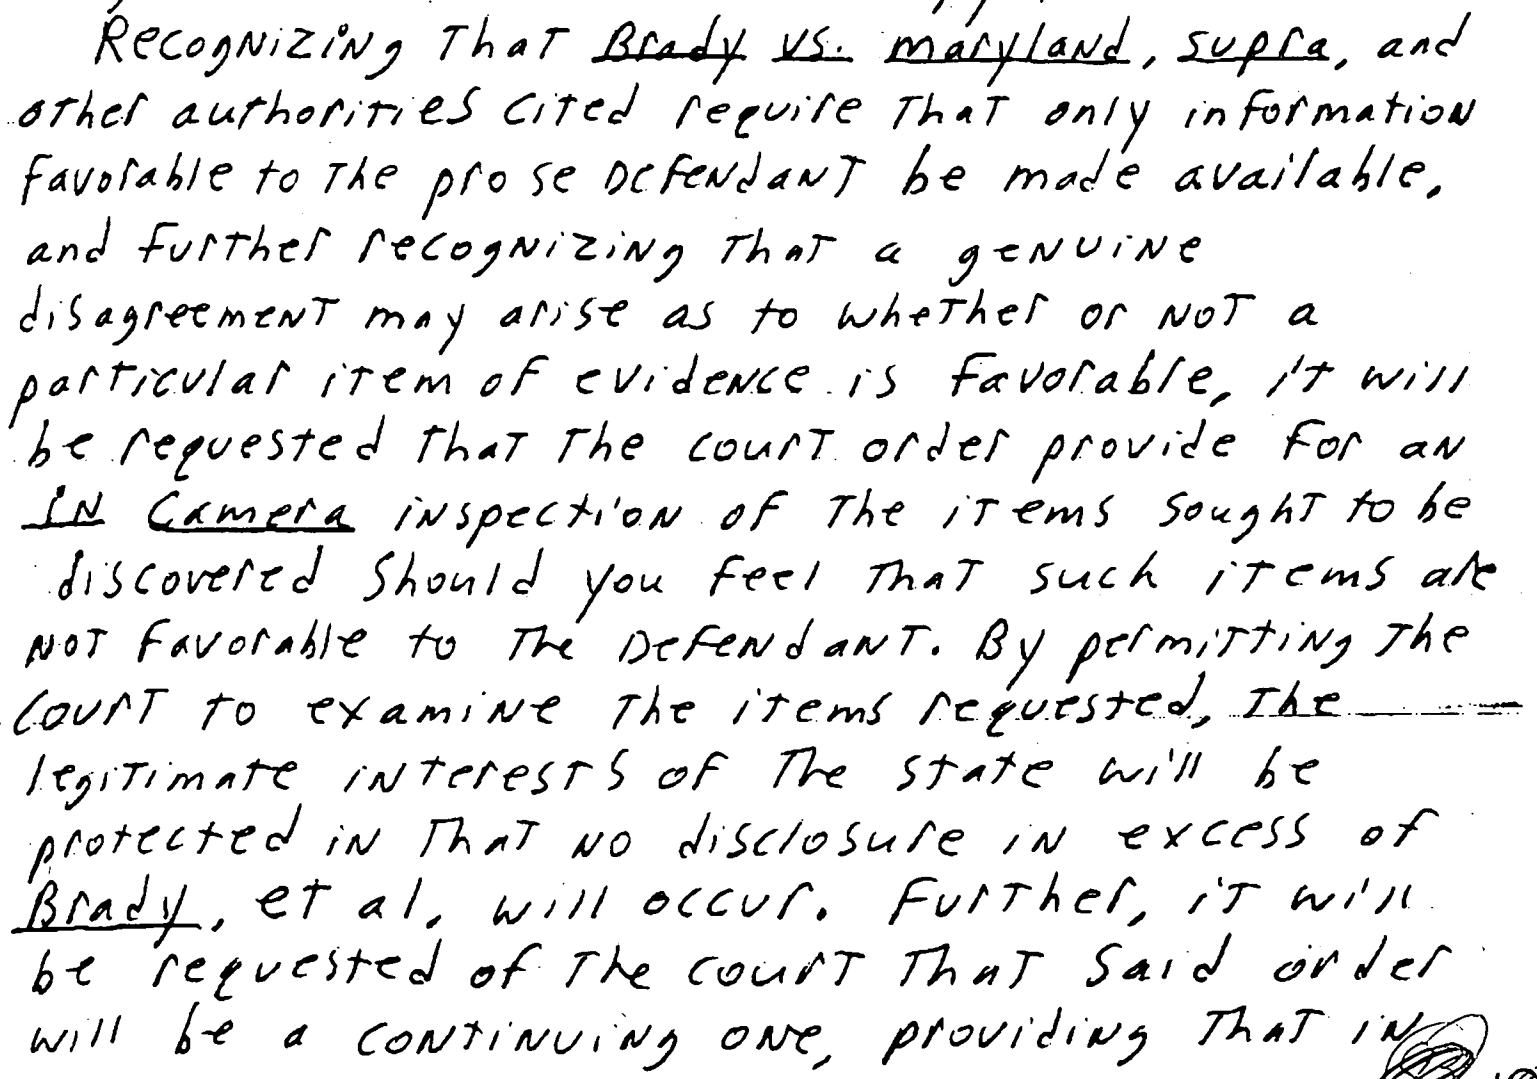 Recognizing That Brady vs. Maryland, supra, and
other authorities cited require That only information
favorable to The pro se Defendant be made available,
and further recognizing That a genuine
disagreement may arise as to whether or not a
particular item of evidence is favorable, it will
be requested That The court order provide for an
IN Camera inspection of The items sought to be
discovered should you feel That such items are
not favorable to The Defendant. By permitting The
court to examine The items requested, The
legitimate interests of The state will be
protected in That no disclosure in excess of
Brady, et al, will occur. Further, it will
be requested of The court That said order
will be a continuing one, providing That in